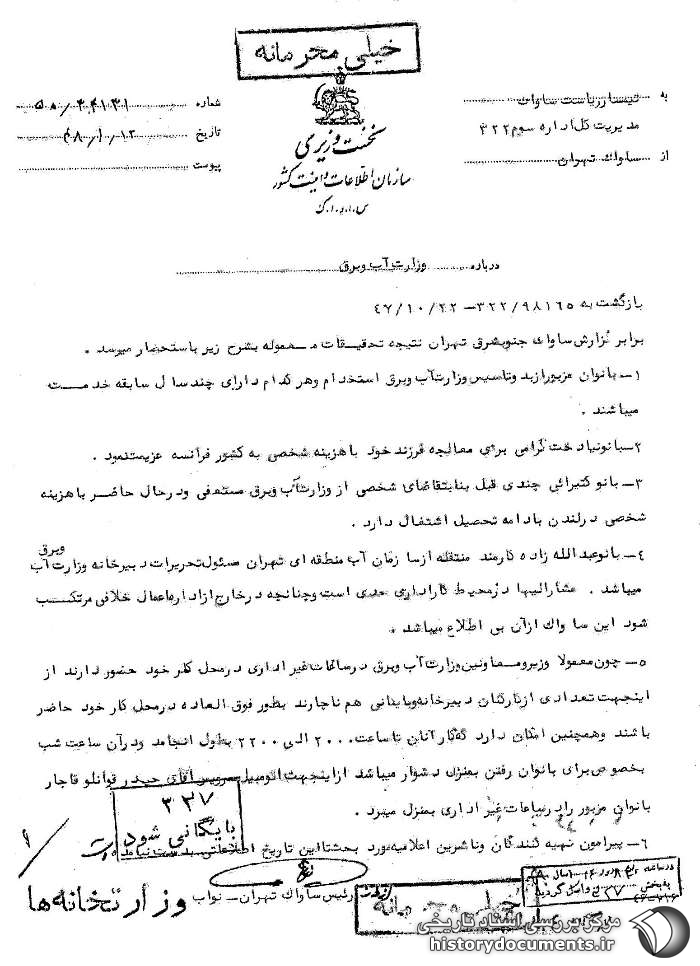 خیلی محرمانه
نخست وزیری
سازمان اطلاعات و امنیت کشور
س.ا.و.ا.ک
به تیمسار ریاست ساواک
مدیریت کل اداره سوم ۳۲۲
از ساواک تهران
شماره
تاریخ
پیوست
درباره وزارت آب وبرق
بازگشت به ۳۲۲/۹۸۱۶۵ – ۴۷/۱۰/۲۲
برابر گزارش ساواک جنوبشرق تهران نتیجه تحقیقات معموله بشرح زیر باستحضار میرسد .
۱ــ بانوان مزبور از بدو تاسیس وزارت آب وبرق استخدام وهر کدام دارای چند سال سابقه خدمت
میباشند .
۲ــ بانو نیادخت گرامی برای معالجه فرزند خود باهزینه شخصی به کشور فرانسه عزیمت نمود .
۳ــ بانو کتیرائی چندی قبل بنابتقاضای شخصی از وزارت آب وبرق مستعفی ودرحال حاضر با هزینه
شخصی درلندن بادامه تحصیل اشتغال دارد .
وبرق
۴ــ بانو عبدالله زاده کارمند منتقله از سازمان آب منطقه ای تهران مسئول تحریرات دبیرخانه وزارت آب
میباشد . مشارالیها در محیط کار اداری جدی است وچنانچه درخارج از اداره اعمال خلافی مرتکب
شود این ساواک از آن بی اطلاع میباشد .
۵ــ چون معمولا وزیر ومعاونین وزارت آب وبرق درساعات غیر اداری درمحل کار خود حضور دارند از
اینجهت تعدادی از کارکنان دبیرخانه وبایگانی هم ناچارند بطور فوق العاده درمحل کار خود حاضر
باشند وهمچنین امکان دارد که کار آنان تا ساعت ۲۰۰۰ الی ۲۲۰۰ بطول انجامد ودرآن ساعت شب
بخصوص برای بانوان رفتن بمنزل دشوار میباشد از اینجهت اتومبیل سرویس آقای حیدر قوانلو قاجار
بانوان مزبور را درساعات غیر اداری بمنزل میبرد .
۶ــ پیرامون تهیه کنندگان وناشرین اعلامیه مورد بحث تااین تاریخ اطلاعاتی بدست نیامده
۳۳۷
بایگانی شود
رئیس ساواک تهران – نواب
وزارتخانه ها
خیلی محرمانه
مرکز بررسی اسناد تاریخی
historydocuments.ir